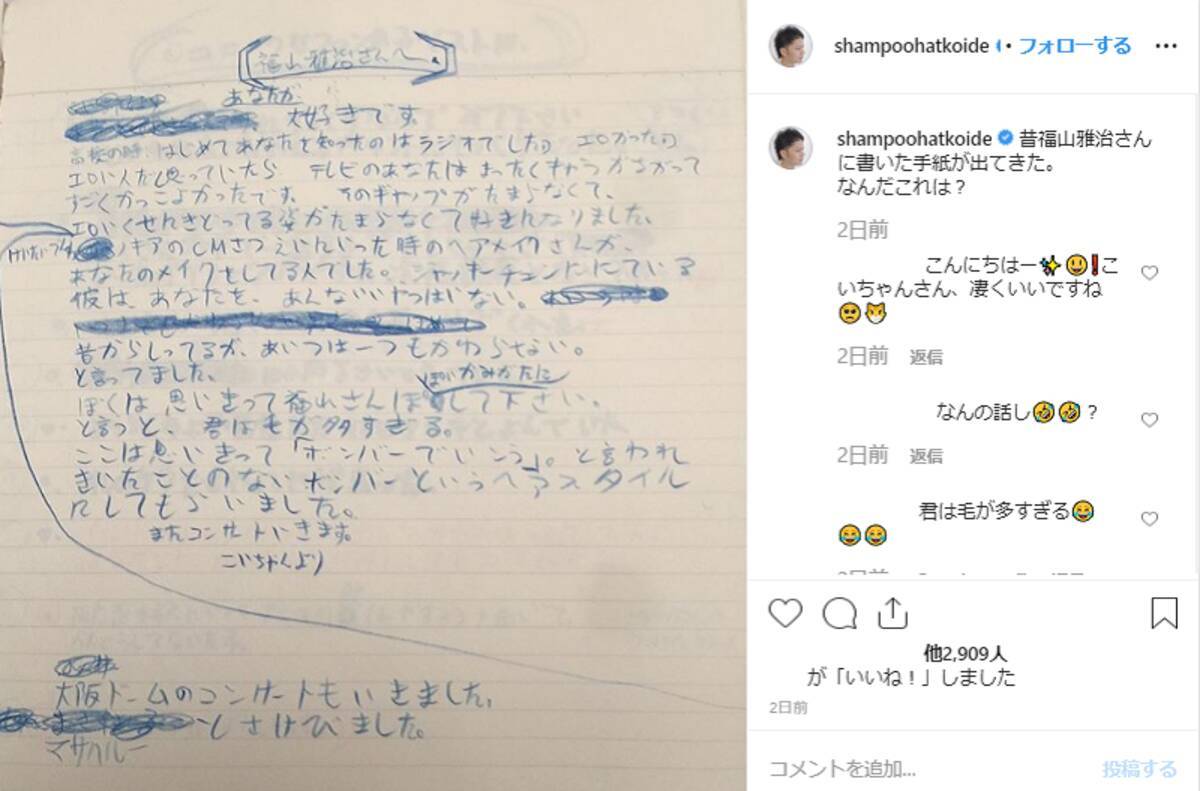 福山雅治さんへ
あなたが
大好きです
高校の時、はじめてあなたを知ったのはラジオでした。エロかったです
エロい人だと思っていたら テレビのあなたは まったくキャラがちがって
すごくかっこよかったです。そのギャップがたまらなくて、
エロいくせしてきどってる姿がたまらなくて好きになりました。
ノキアのCMさつえいにいった時のヘアメイクさんが、
あなたのメイクをしてる人でした。ジャッキーチェンににている
彼は、あなたを、あんないいやつはいない。
昔からしってるが、あいつは一つもかわらない。
と言ってました。
ぽいかみがたに
ぼくは 思いきって福山さん して下さい。
と言うと、君は毛が多すぎる。
ここは思いきって「ボンバーでいこう」。と言われ
きいたことのないボンバーというヘアスタイル
にしてもらいました。
またコンサートいきます。
こいちゃんより
大阪ドームのコンサートもいきました。
とさけびました。
マサハルー
shampoohatkoide • フォローする
shampoohatkoide 昔福山雅治さん
に書いた手紙が出てきた。
なんだこれは？
2日前
こんにちはー✨😃❗こ
いちゃんさん、凄くいいですね
🥺😼
2日前 返信
なんの話し🤣🤣？
2日前 返信
君は毛が多すぎる😂
😂😂
他2,909人
が「いいね！」しました
2日前
コメントを追加... 投稿する